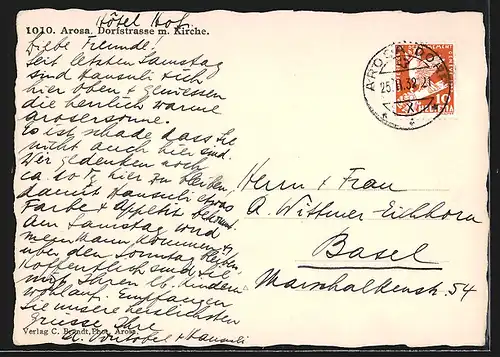 Hôtel Hof.
1010. Arosa. Dorfstrasse m. Kirche.
Liebe Freunde!
Seit letzten Samstag
sind Hansuli & ich
hier oben & geniessen
die herrlich warme
Arosersonne.
Es ist schade dass Sie
nicht auch hier sind.
Wir gedenken noch
ca. 10 Tg. hier zu bleiben,
damit Hansuli etwas
Farbe & Appetit bekommt.
Am Samstag wird
mein Mann kommen &
über den Sonntag bleiben.
Hoffentlich sind Sie
mit Ihren lb. Kindern
wohlauf. Empfangen
Sie unsere herzlichsten
Grüsse Ihre
& Hansuli
Verlag C. Brandt, Phot. Arosa.
AROSA DORF
25.II.32.21
X
10
HELVETIA
Herrn & Frau
A. Wittmer-Eichhorn
Basel
Marschalkenstr. 54